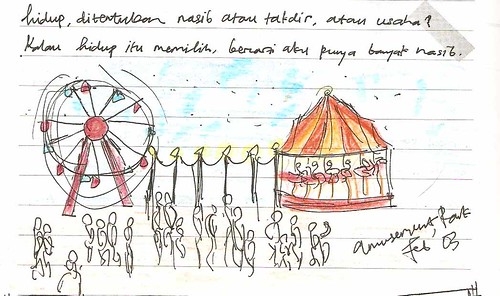 hidup, ditentukan nasib atau takdir, atau usaha?
Kalau hidup itu memilih, berarti aku punya banyak nasib.
amusement Park
Feb 03